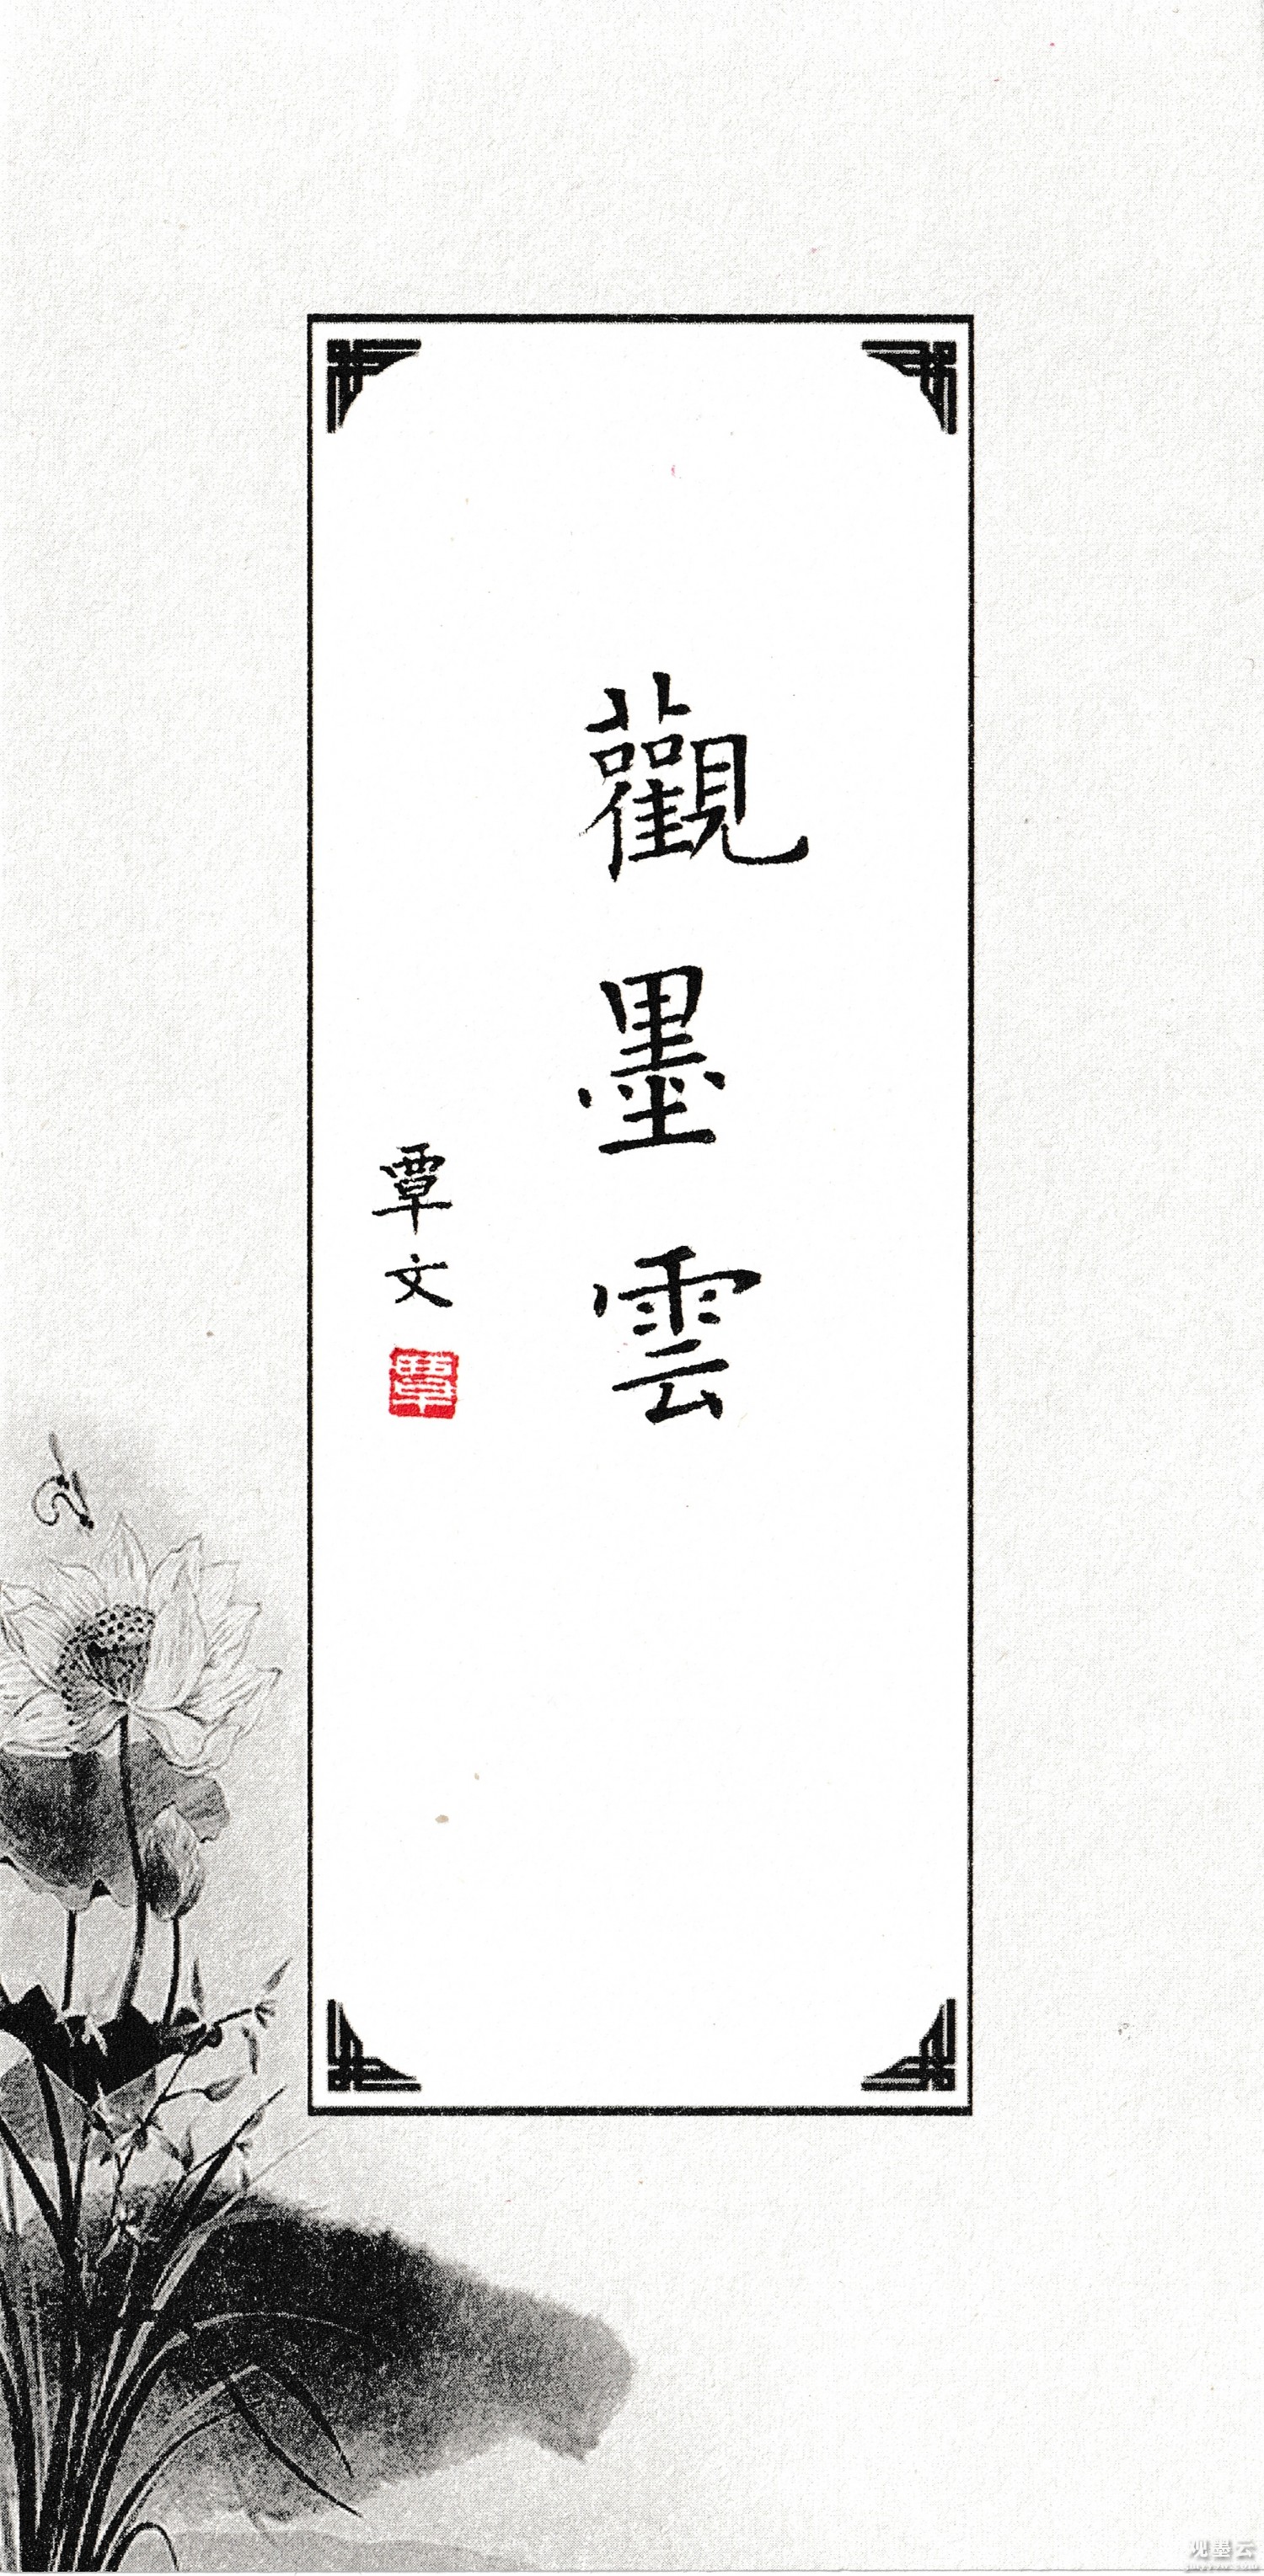 觀墨雲
覃文
覃
观墨云